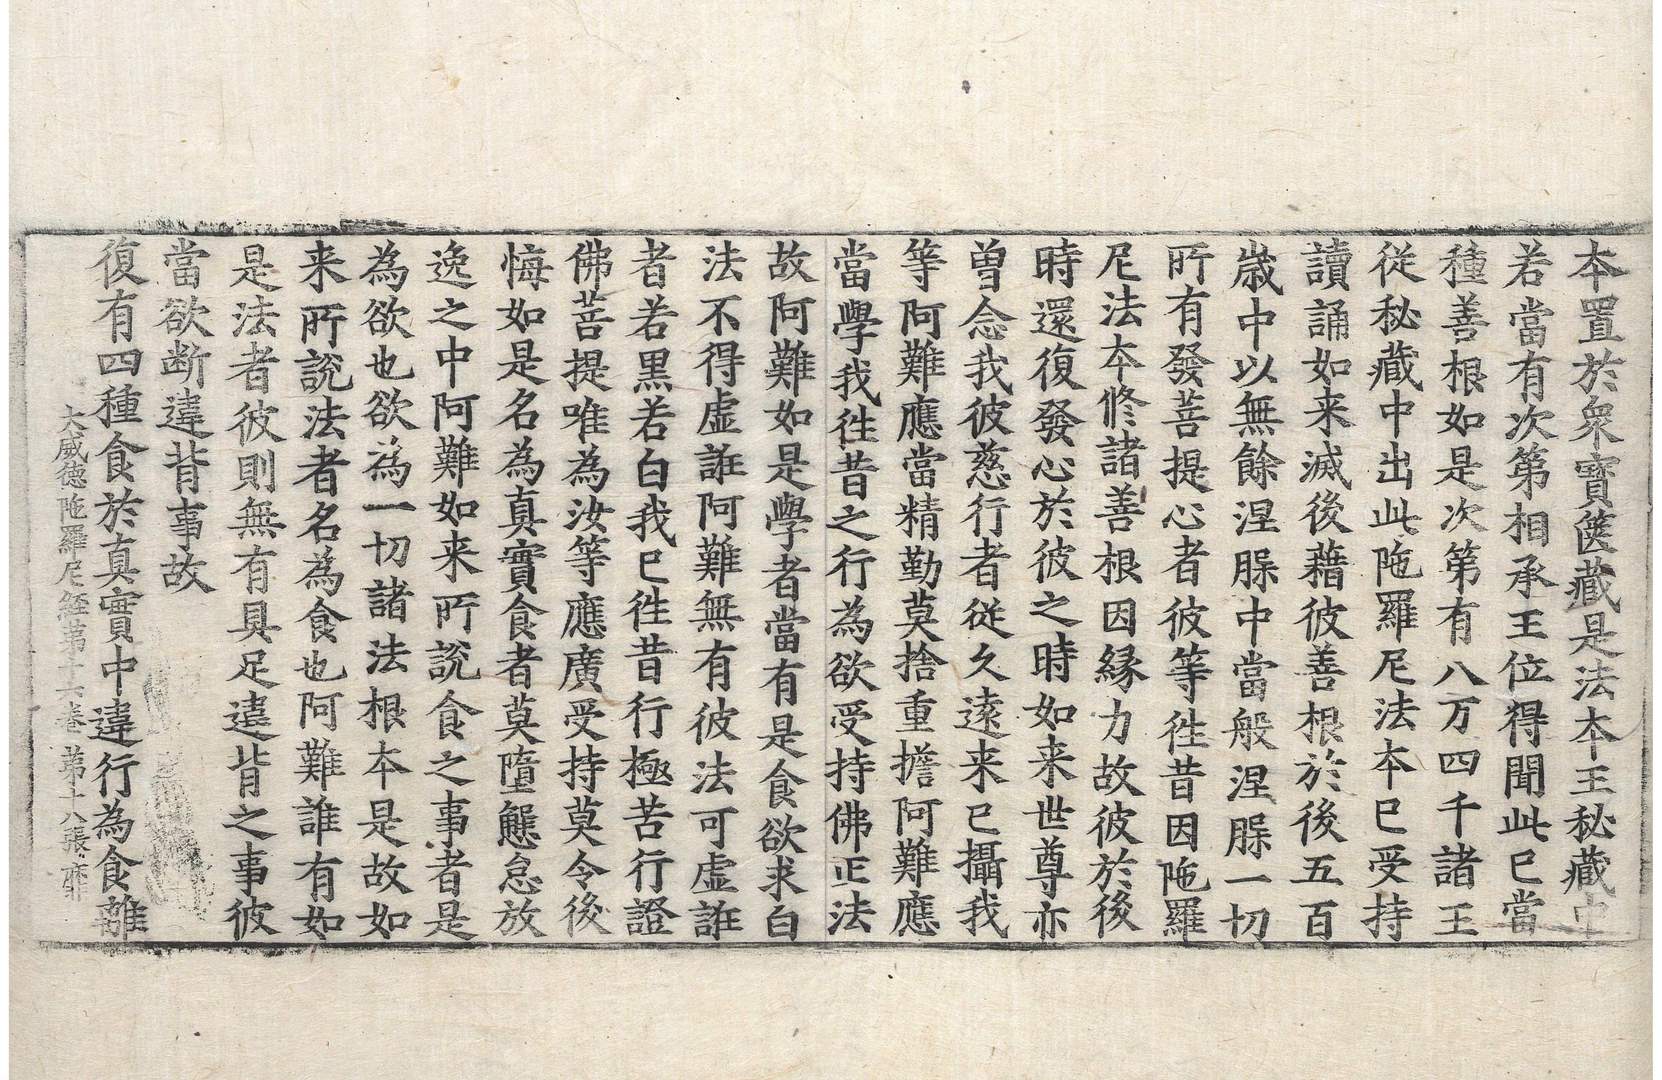 本置於衆寶篋藏是法本王秘藏中
若當有次第相承王位得聞此已當
種善根如是次第有八万四千諸王
從秘藏中出此陁羅尼法本已受持
讀誦如来滅後藉彼善根於後五百
歲中以無餘涅脲中當般涅脲一切
所有發菩提心者彼等徃昔因陁羅
尼法本修諸善根因緣力故彼於後
時還復發心於彼之時如来世尊亦
曽念我彼慈行者從久遠来已攝我
等阿難應當精勤莫捨重擔阿難應
當學我徃昔之行為欲受持佛正法
故阿難如是學者當有是食欲求白
法不得虛誑阿難無有彼法可虛誑
者若黒若白我已徃昔行極苦行證
佛菩提唯為汝等應廣受持莫令後
悔如是名為真實食者莫墮懈怠放
逸之中阿難如来所說食之事者是
為欲也欲為一切諸法根本是故如
来所說法者名為食也阿難誰有如
是法者彼則無有具足違背之事彼
當欲断違背事故
復有四種食於真實中違行為食離
大威德陁羅尼經第十六卷 第十八張 靡